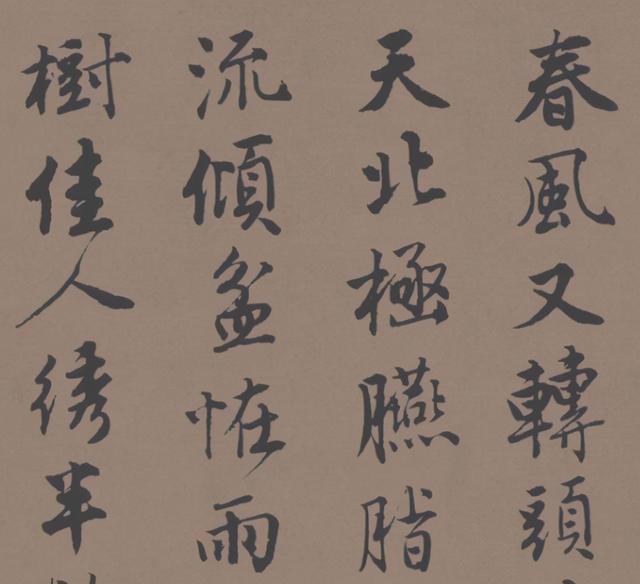 春風又轉頭
天北極臙脂
流傾盆恠雨
樹佳人绣半